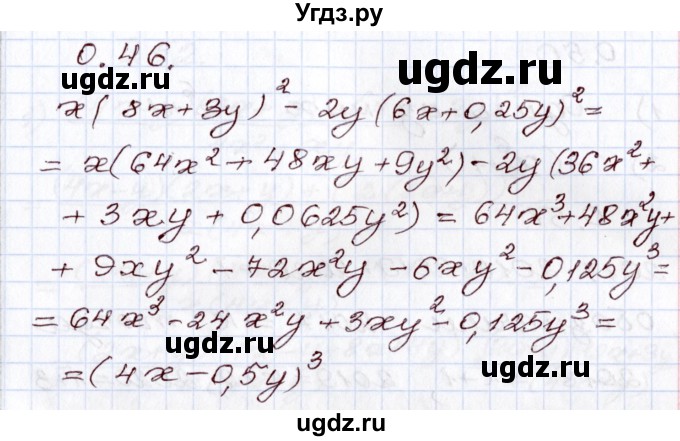 Угдз.ру
0.46.
ugdz.ru
ugdz.ru
x(8x+3y)² - 2y(6x+0,25y)² =
= x(64x² + 48xy + 9y²) - 2y(36x² +
+ 3xy + 0,0625y²) = 64x³ + 48x²y +
+ 9xy² - 72x²y - 6xy² - 0,125y³ =
= 64x³ - 24x²y + 3xy² - 0,125y³ =
ugdz.ru
ugdz.ru
= (4x - 0,5y)³
ugdz.ru